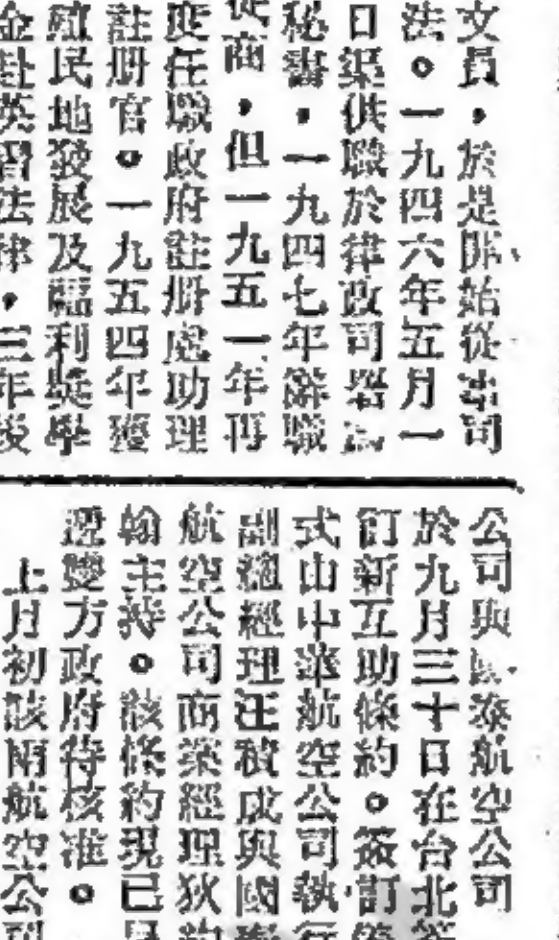 文員，於是開始從事司
法。一九四六年五月一
日渠供職於律政司署為
秘書，一九四七年辭職
從商，但一九五一年再
度任職政府註册處助理
註册官。一九五四年獲
殖民地發展及福利獎學
金赴英習法律，三年後
公司與國泰航空公司
於九月三十日在台北簽
訂新互助條約。簽訂
式由中華航空公司執行
副總經理汪積成與國
航空公司商業經理狄
翰主持。該條約現已呈
遞雙方政府待核准。
上月初該兩航空公司